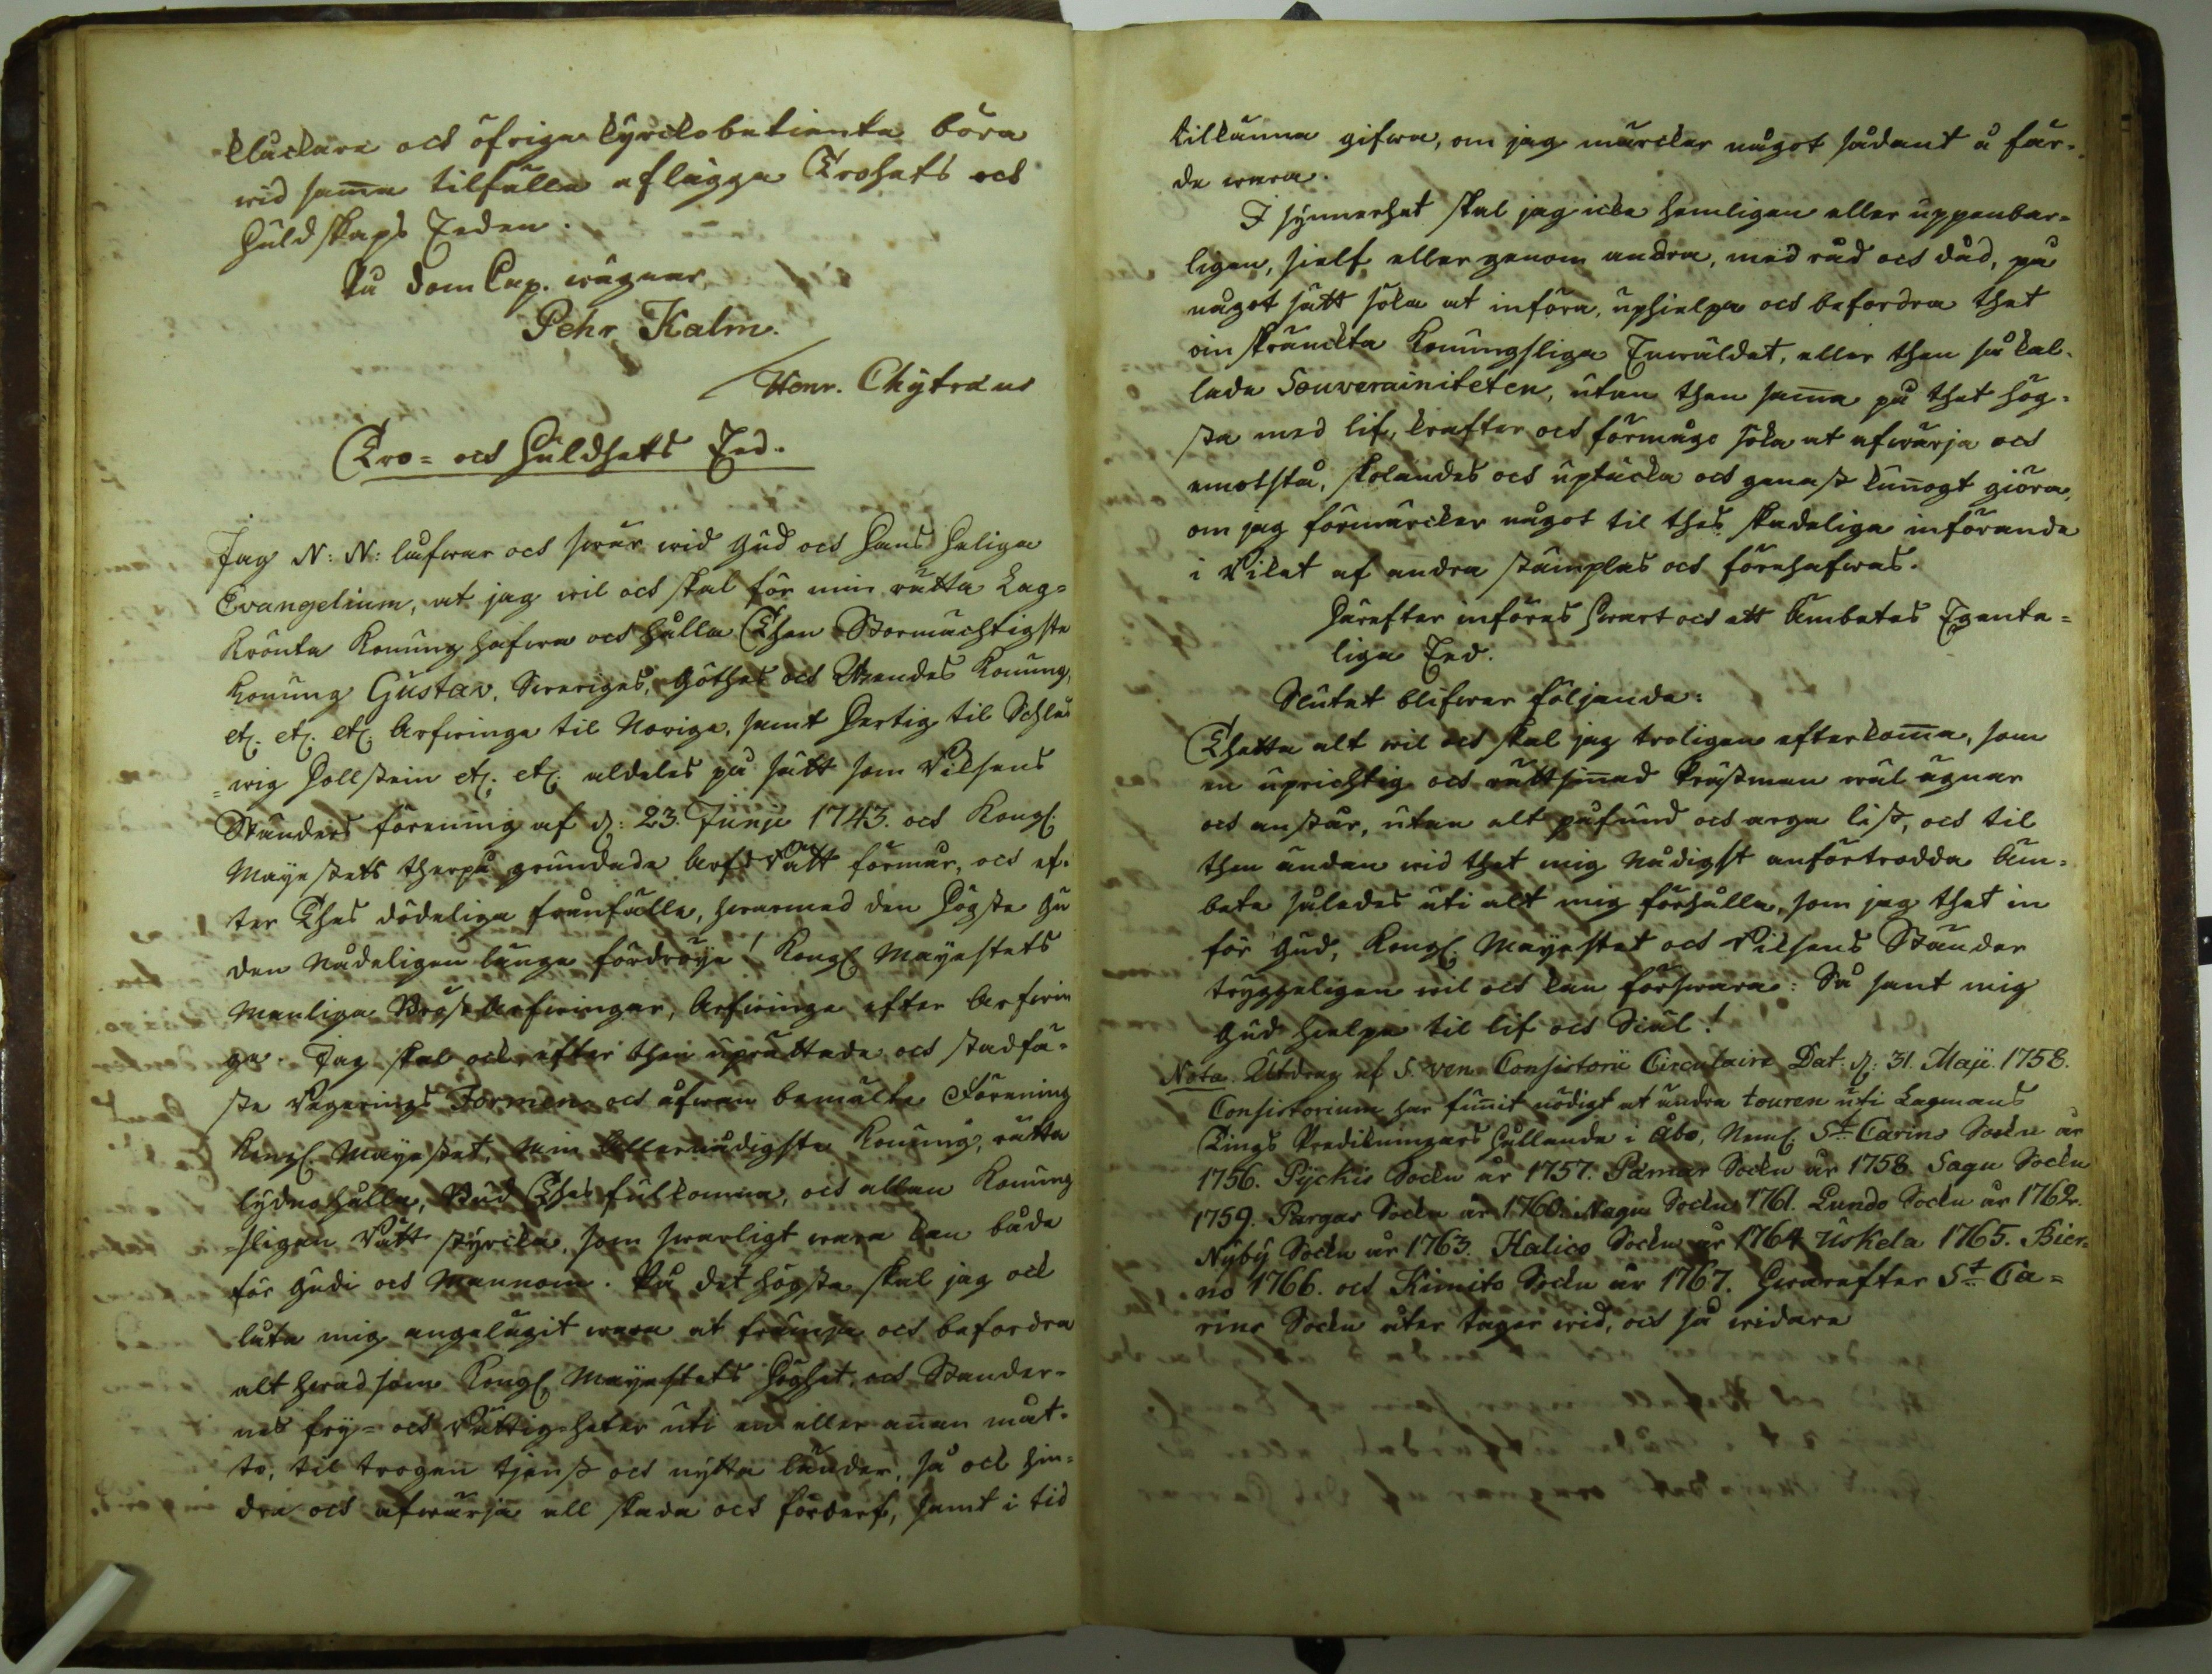 kluckare och öfriga kyrckobetiente böra
wid sam̄a tilfälle aflägga Trohets och
Huldskaps Eeden.
På Dom Cap. wägnar
Pehr Kalm.
Henr. Chytræus
Tro- och Huldhets Eed.
Jag N: N: lofwar och swär wid Gud och Hans Heliga
Evangelium, at jag wil och skal för min rätta Lag-
krönta Konung hafwa och hålla Then Stormächtigste
Konung Gustav, Sweriges, Göthes och Wendes Konung,
etc. etc. etc. Arfwinge til Norige, samt Hertig til Schles
=wig Hollstein etc. etc. aldeles på sätt som Riksens
Ständers förening af d: 23. Junji 1743. och Kongl.
Mayestets therpå grundade Arf-Rätt förmår, och ef-
ter Thes dödeliga frånfälle, hwarmed den Högste Gu
den Nådeligen länge fördröye! Kongl Mayestets
Manliga BröstArfwingar, Arfwinge efter Arfwin
ge. Jag skal ock efter then uprättade och stadfä-
ste Regerings Formen och åfwan bemälte Förening
Kongl Mayestet, Min Allernådigste Konung, rätta
lydno hålla, Bud Thes fulkomna, och allan Konung
sligan Rätt styrcka, som swarligt wara kan både
för Gudi och Mannom. På det högsta skal jag ock
låta mig angelägit wara at främja och befordra
alt hwad som Kongl Mayestets Höghet, och Stander-
nes fry- och Rättigheter uti en eller an̄an måt-
to, til trogen tjenst och nytta länder, så ock hin-
dra och afwärja all skada och förderf, samt i tid
tilkänna gifwa, om jag märcker något sådant å fär-
de wara.
I synnerhet skal jag icke hemligen eller uppenbar-
ligen, sielf eller genom andra, med råd och dåd, på
något sätt söka at införa, uphielpa och befordra thet
oinskränckta Konungsliga Enwäldet, eller then så kal-
lade Souverainiteten, utan then sam̄a på thet hög-
sta med lif, krafter och förmåge söka at afwärja och
emotstå, skolandes och uptäcka och genast kun̄ogt giöra,
om jag förmärcker något til thes skadeliga införande
i Riket af andra stämplas och förehafwas.
Härefter införes hwart och ett Ämbetes Egente-
liga Eed.
Slutet blifwer följande:
Thetta alt wil och skal jag troligen efterkom̄a, som
en uprichtig och rättsin̄ad Prästman wäl ägnar
och anstår, utan alt påfund och arga list, och til
then ändan wid thet mig Nådigst anförtrodda Äm-
bete således uti alt mig förhålla, som jag thet in
för Gud, Kongl. Mayestet och Riksens Ständer
tryggeligen wil och kan förswara: Så sant mig
Gud hielpe til lif och Siäl!
Nota. Utdrag af S. ven. Consistorii Circulaire Dat: d: 31. Maji. 1758.
Consistorium har fun̄it nödigt at ändra touren uti Lagmans
Tings Predikningars hållande i Åbo, Neml. St. Carins Sockn år
1756. Pychis Sockn år 1757. Pämar Sockn år 1758. Sagu Sockn
1759. Pargas Sockn år 1760. Nagu Sockn 1761. Lundo Sockn år 1762.
Nyby Sockn år 1763. Halico Sockn år 1764 Uskela 1765. Bier-
no 1766. och Kimito Sockn år 1767. Hwarefter St. Ca-
rins Sockn åter tager wid, och så widare